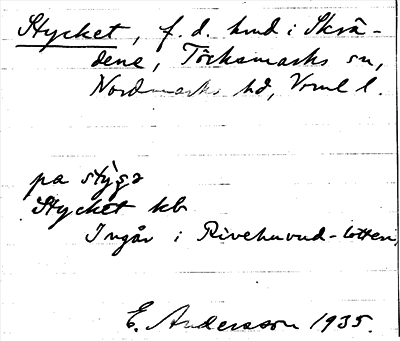 Stycket, f. d. hmd i Skrä-
dene, Töcksmarks sn,
Nordmarks hd, Vrml l.
pa stýgə
Stycket kb
Ingår i Rivehuvud-lotten,
E. Andersson 1935.